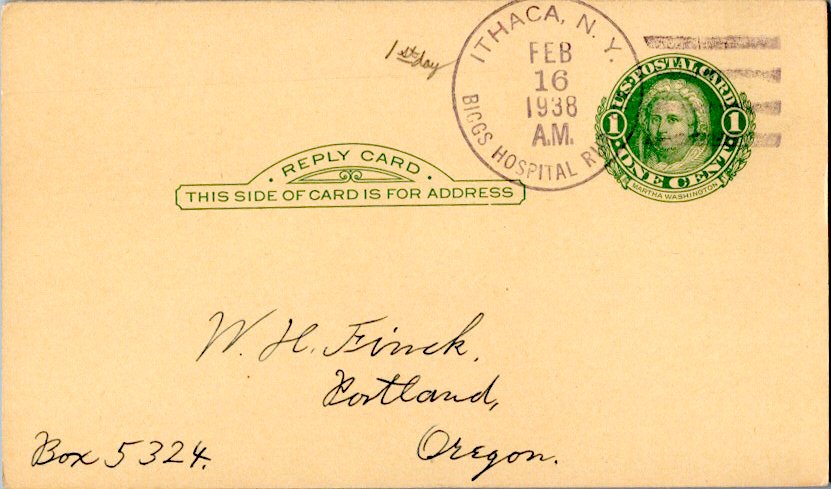 1st day
ITHACA, N.Y.
FEB
16
1938
A.M.
BIGGS HOSPITAL
U.S. POSTAL CARD
1 1
ONE CENT
MARTHA WASHINGTON
REPLY CARD
THIS SIDE OF CARD IS FOR ADDRESS
W. H. Finck.
Portland,
Box 5324.
Oregon.